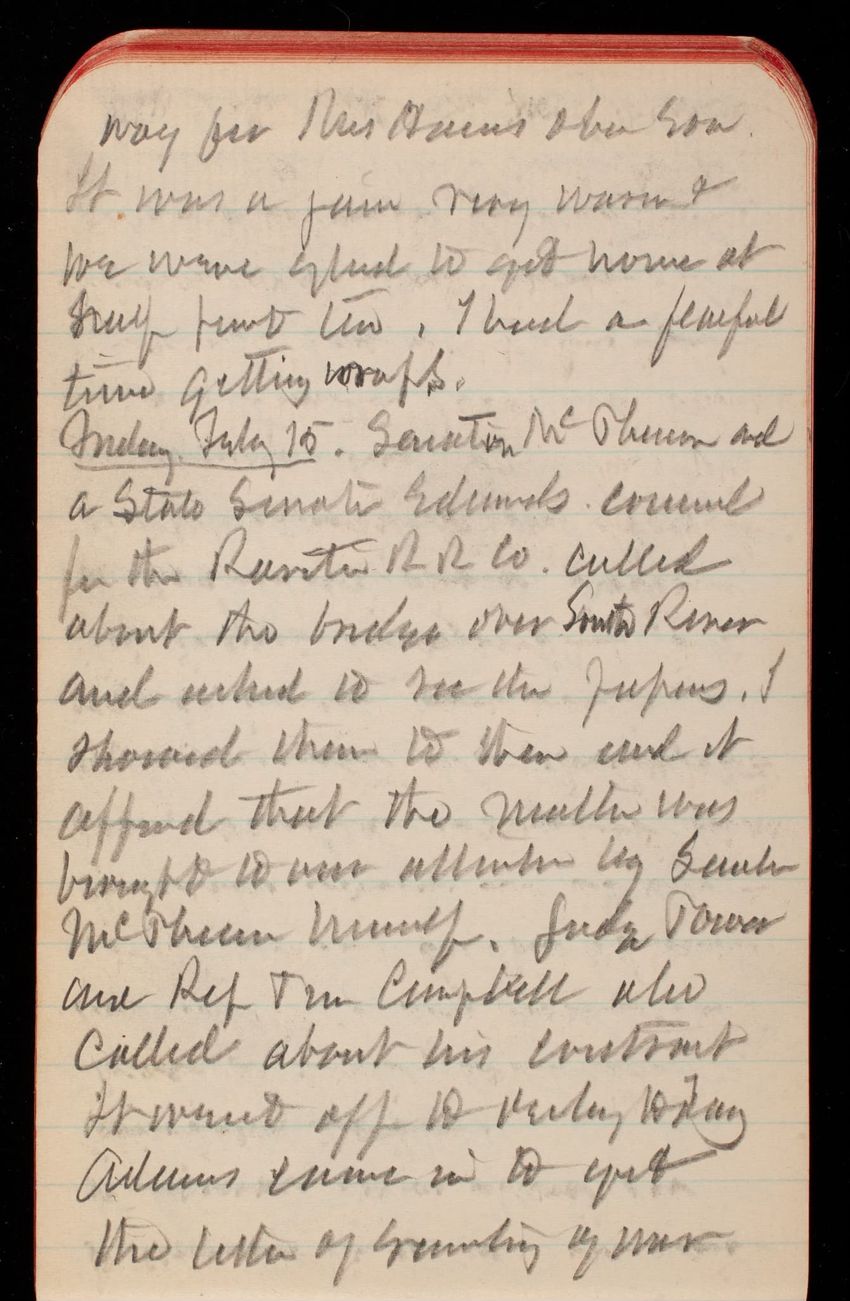 way for Mrs Harris & her son.
It was a fair very warm &
we were glad to get home at
half past ten. I had a fearful
time getting wraps.
Friday, July 15. Senator McPherson and
a State Senator Edmunds. counsel
for the Raritan R R Co. called
about the bridge over South River
and asked to see the papers. I
showed them to them and it
appeared that the matter was
brought to our attention by Senator
McPherson himself. Judge Tower
and Rep Tim Campbell also
called about his contract
It went off to day
Adams came in to get
the letter of Secretary of War